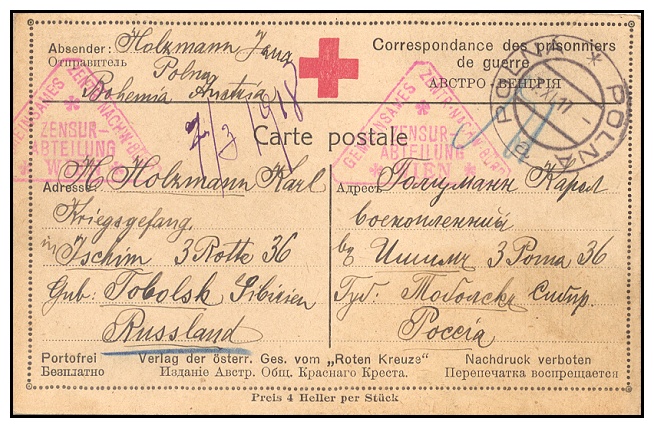 Absender: Holzmann Jana
Отправитель
Polna
Bohemia Austria
Correspondance des prisonniers
de guerre
АВСТРО-ВЕНГРІЯ
POLNA * POLNÁ
XI.17
GEMEINSAMES ZENTR.NACHW.BÜR.
ZENSUR-
ABTEILUNG
WIEN
GEMEINSAMES ZENTR.NACHW.BÜR.
ZENSUR-
ABTEILUNG
* WIEN *
2/3 1918
Carte postale
Adresse: H. Holzmann Karl
Kriegsgefang.
in Ischim 3 Rotte 36
Gub: Tobolsk Sibirien
Russland
Адресъ: Голцманн Карол
военопленный
въ Ишимъ 3 Рота 36
Губ: Тоболскъ Сибир.
Россіа
Portofrei Verlag der österr. Ges. vom „Roten Kreuze“ Nachdruck verboten
Безплатно Изданіе Австр. Общ. Краснаго Креста. Перепечатка воспрещается
Preis 4 Heller per Stück